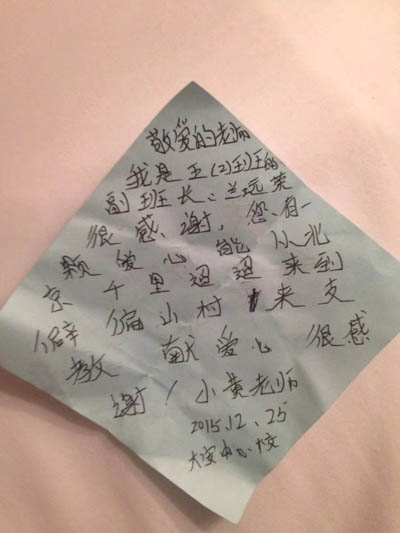 敬爱的老师
我是五(2)班班的
副班长:兰琉荣
很感谢,您有一
颗爱心能从北
京千里迢迢来到
僻偏山村来支
教献爱心很感
谢!小黄老师
2015.12.25
大安中心校